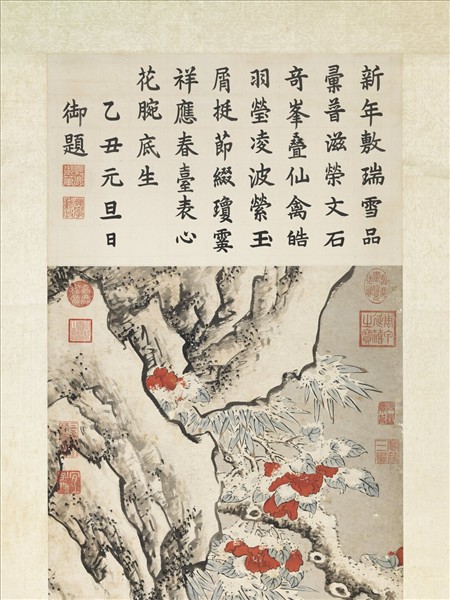 新年敷瑞雪品
彙普滋榮文石
奇峯疊仙禽皓
羽瑩凌波縈玉
屑挺節綴瓊霙
祥應春臺表心
花腕底生
乙丑元旦日
御題